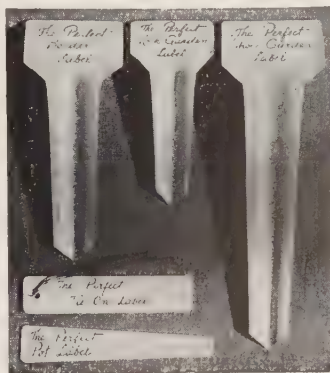 The Perfect
Border
Label
The Perfect
Garden
Label
The Perfect
Garden
Label
The Perfect
Tie On Label
The Perfect
Pot Label